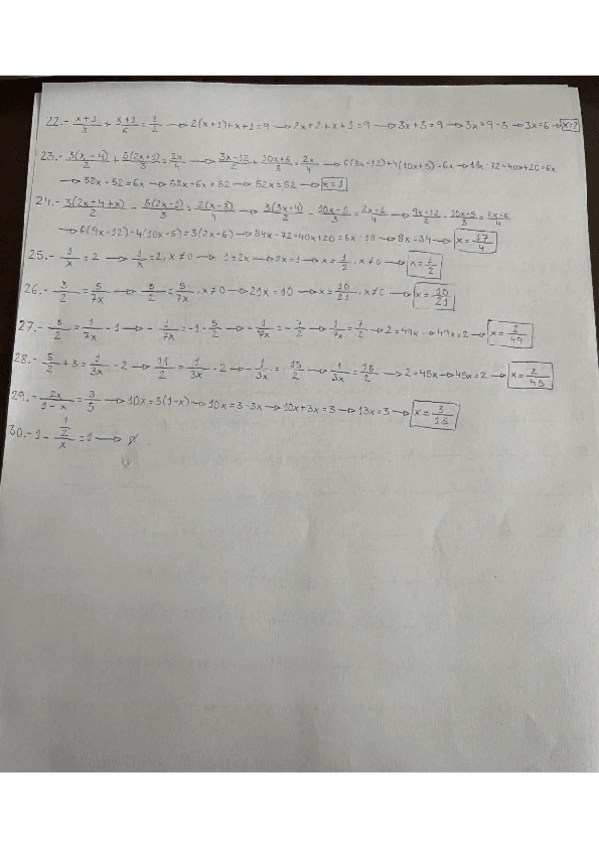 22.- (x+1)/3 + (x+1)/6 = 3/2 → 2(x+1)+x+1=9 → 2x+2+x+1=9 → 3x+3=9 → 3x=9-3 → 3x=6 → x=2
23.- 3(x-4)/2 + 5(2x+1)/3 = 2x/4 → (3x-12)/2 + (10x+5)/3 = 2x/4 → 6(3x-12)+4(10x+5)=6x → 18x-72+40x+20=6x
→ 58x-52=6x → 58x-6x=52 → 52x=52 → x=1
24.- 3(2x-4+x)/2 - 5(2x-1)/3 = 2(x-3)/4 → 3(3x-4)/2 - (10x-5)/3 = (2x-6)/4 → (9x-12)/2 - (10x-5)/3 = (2x-6)/4
→ 6(9x-12)-4(10x-5)=3(2x-6) → 54x-72-40x+20=6x-18 → 8x=34 → x=17/4
25.- 1/x = 2 → 1/x = 2, x≠0 → 1=2x → 2x=1 → x=1/2, x≠0 → x=1/2
26.- 3/2 = 5/7x → 3/2 = 5/7x, x≠0 → 21x=10 → x=10/21, x≠0 → x=10/21
27.- 5/2 = 1/7x - 1 → -1/7x = -1-5/2 → -1/7x = -7/2 → 1/7x = 7/2 → 2=49x → 49x=2 → x=2/49
28.- 5/2 + 3 = 1/3x - 2 → 11/2 = 1/3x - 2 → -1/3x = -15/2 → 1/3x = 15/2 → 2=45x → 45x=2 → x=2/45
29.- 2x/(1-x) = 3/5 → 10x=3(1-x) → 10x=3-3x → 10x+3x=3 → 13x=3 → x=3/13
30.- 1 - (1/2)/x = 1 → ∅